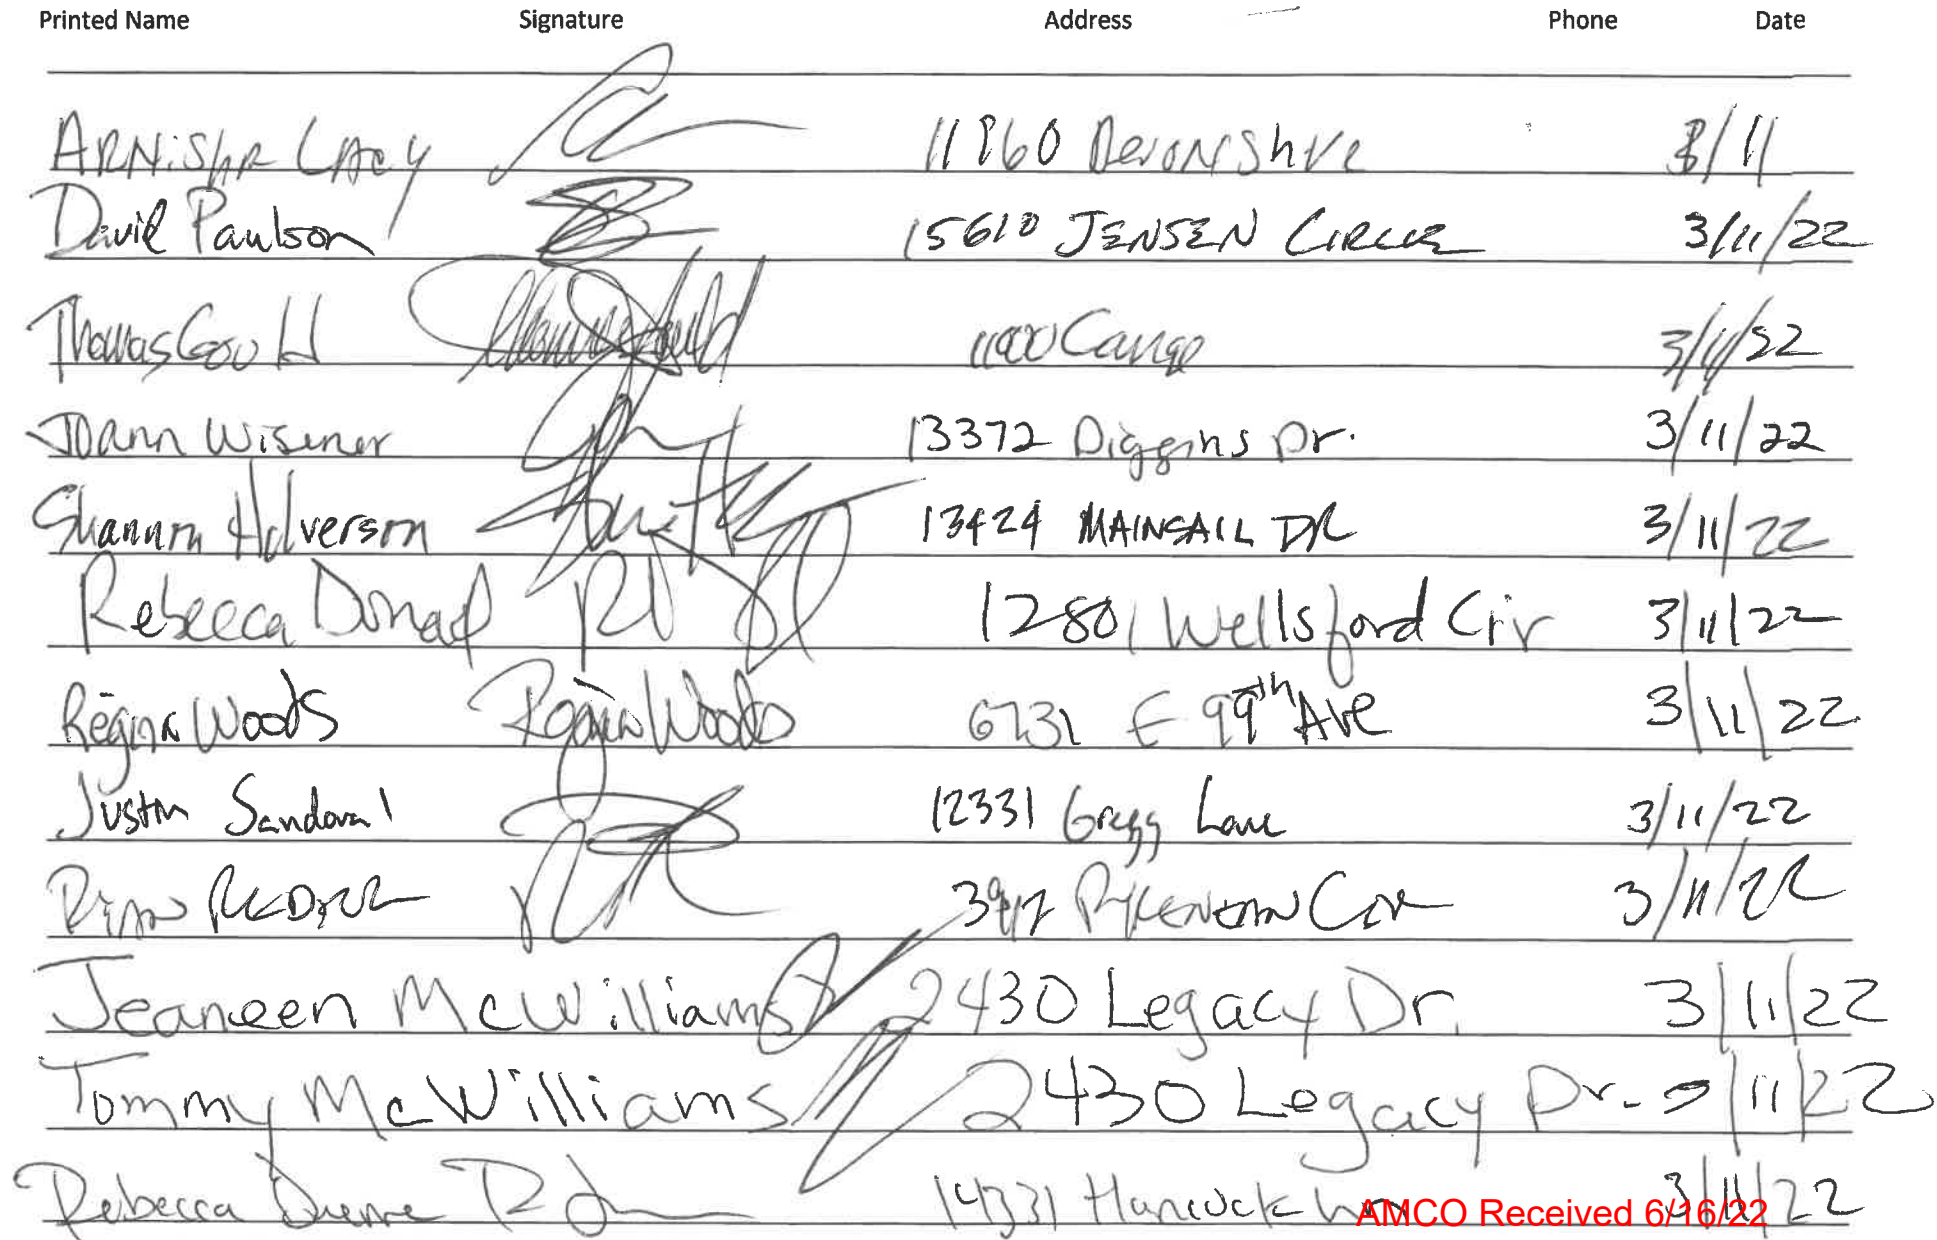 Printed Name Signature Address Phone Date
ARNisha LAcy 11860 Devonshire 3/11
David Paulson 15610 JENSEN CIRCLE 3/11/22
Thomas Gould 11900 Cange 3/11/22
Joann Wisener 13372 Diggins Dr. 3/11/22
Shannon Halverson 13424 MAINSAIL DR 3/11/22
Rebecca Donald 12801 Wellsford Cir 3/11/22
Regina Woods Regina Woods 6731 E 99th Ave 3/11/22
Justin Sandoval 12331 Gregg Lane 3/11/22
Ryan 3/11/22
Jeaneen McWilliams 2430 Legacy Dr. 3/11/22
Tommy McWilliams 2430 Legacy Dr. 3/11/22
Rebecca 14331 Hancock 3/11/22
AMCO Received 6/16/22